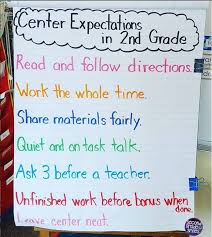 Center Expectations
in 2nd Grade
Read and follow directions.
Work the whole time.
Share materials fairly.
Quiet and on task talk.
Ask 3 before a teacher.
Unfinished work before bonus when
done.
Leave center neat.